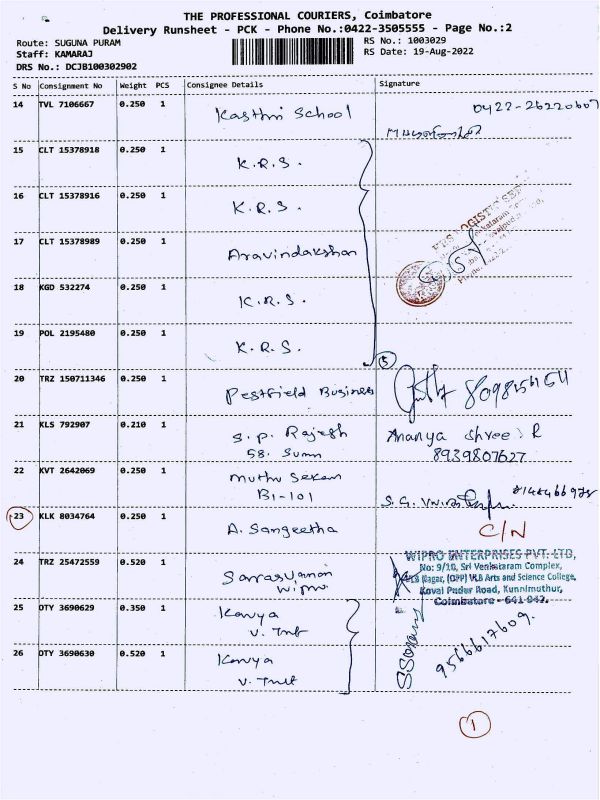 THE PROFESSIONAL COURIERS, Coimbatore
Delivery Runsheet - PCK - Phone No.:0422-3505555 - Page No.:2
Route: SUGUNA PURAM
RS No.: 1003029
Staff: KAMARAJ
RS Date: 19-Aug-2022
DRS No.: DCJB100302902
S No Consignment No Weight PCS Consignee Details Signature
14 TVL 7106667 0.250 1 Kasthri School 0422-26220607
15 CLT 15378918 0.250 1 K.R.S.
16 CLT 15378916 0.250 1 K.R.S.
17 CLT 15378989 0.250 1 Aravindakshan
18 KGD 532274 0.250 1 K.R.S.
19 POL 2195480 0.250 1 K.R.S.
5
20 TRZ 150711346 0.250 1 Pestfield Business
21 KLS 792907 0.210 1 S.P. Rajesh Ananya Shree. R
58. 8939807627
22 KVT 2642069 0.250 1 Muthu
B1-101
S.G.
23 KLK 8034764 0.250 1 A. Sangeetha C/N
24 TRZ 25472559 0.520 1
WIPRO ENTERPRISES PVT. LTD,
No: 9/10, Sri Venkataram Complex,
VLB Nagar, (OPP) VLB Arts and Science College,
Kovai Pudur Road, Kunnimuthur,
Coimbatore - 641 042.
25 OTY 3690629 0.350 1 Kavya
9566617609.
26 OTY 3690630 0.520 1 Kavya
1